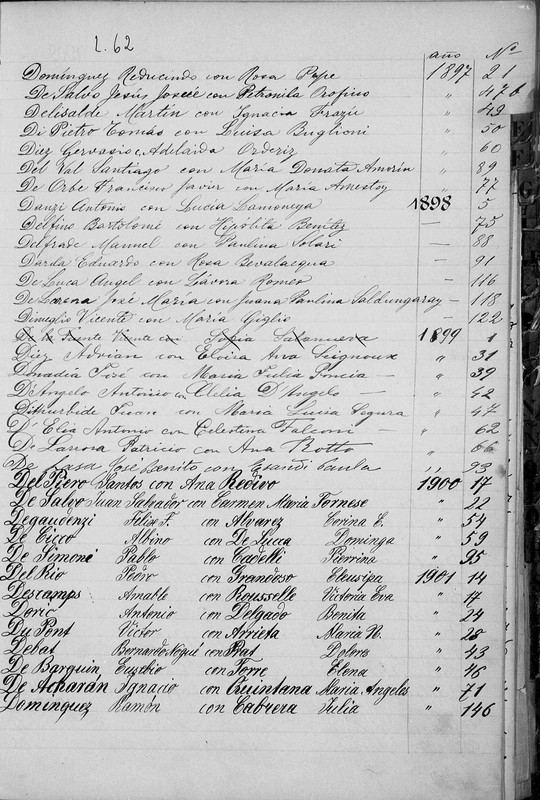 L. 62
año Nº
Domínguez Reducindo con Rosa Pepe 1897 21
De Salvo Jesús José con Petronila Orofino " 476
Delisalde Martin con Ignacia Frazú " 49
Di Pietro Tomás con Luisa Buglioni " 50
Diez Gervasio c. Adelaida Orderiz " 60
Del Val Santiago con Maria Donata Amorin " 89
De Orbe Francisco Javier con Maria Amestoy " 77
Danzi Antonio con Lucia Lamonega 1898 5
Delfino Bartolomé con Hipolita Benitez — 75
Delfrade Manuel con Paulina Solari — 88
Darda Eduardo con Rosa Bevalacqua — 91
De Luca Angel con Isavora Romeo — 116
De Lorena José Maria con Juana Paulina Saldungaray — 118
Dimeglio Vicente con Maria Giglio — 122
De la Fuente Vicente con Sofia Salanueva 1899 1
Diez Adrian con Eloisa Ana Peignoux " 31
Donadia José con Maria Julia Poncia — " 39
D'Angelo Antonio con Clelia D'Angelo — " 42
Dithurbide Juan con Maria Luisa Segura " 47
D'Elia Antonio con Celestina Falconi — " 62
Di Larrora Patricio con Ana Rotto " 66
De Casa José Benito con " 93
Del Piero Santos con Ana Redivo 1900 17
De Salvo Juan Salvador con Carmen Maria Fornese " 22
Degaudenzi Félix F. con Alvarez Corina E. " 54
De Cicco Albino con De Lucca Dominga " 59
De Simone Pablo con Cadelli Pierrina " 95
Del Rio Pedro con Frandoso Eleusipa 1901 14
Descamps Amable con Rousselle Victoria Eva " 17
Doric Antonio con Delgado Benita " 24
Du Pont Victor con Arrieta Maria N. " 28
Debat Bernardo Nogué con Prat Dolores " 43
De Barquin Eusebio con Torre Elena " 46
De Acharán Ignacio con Quintana Maria Angeles " 71
Dominguez Ramón con Cabrera Julia " 146